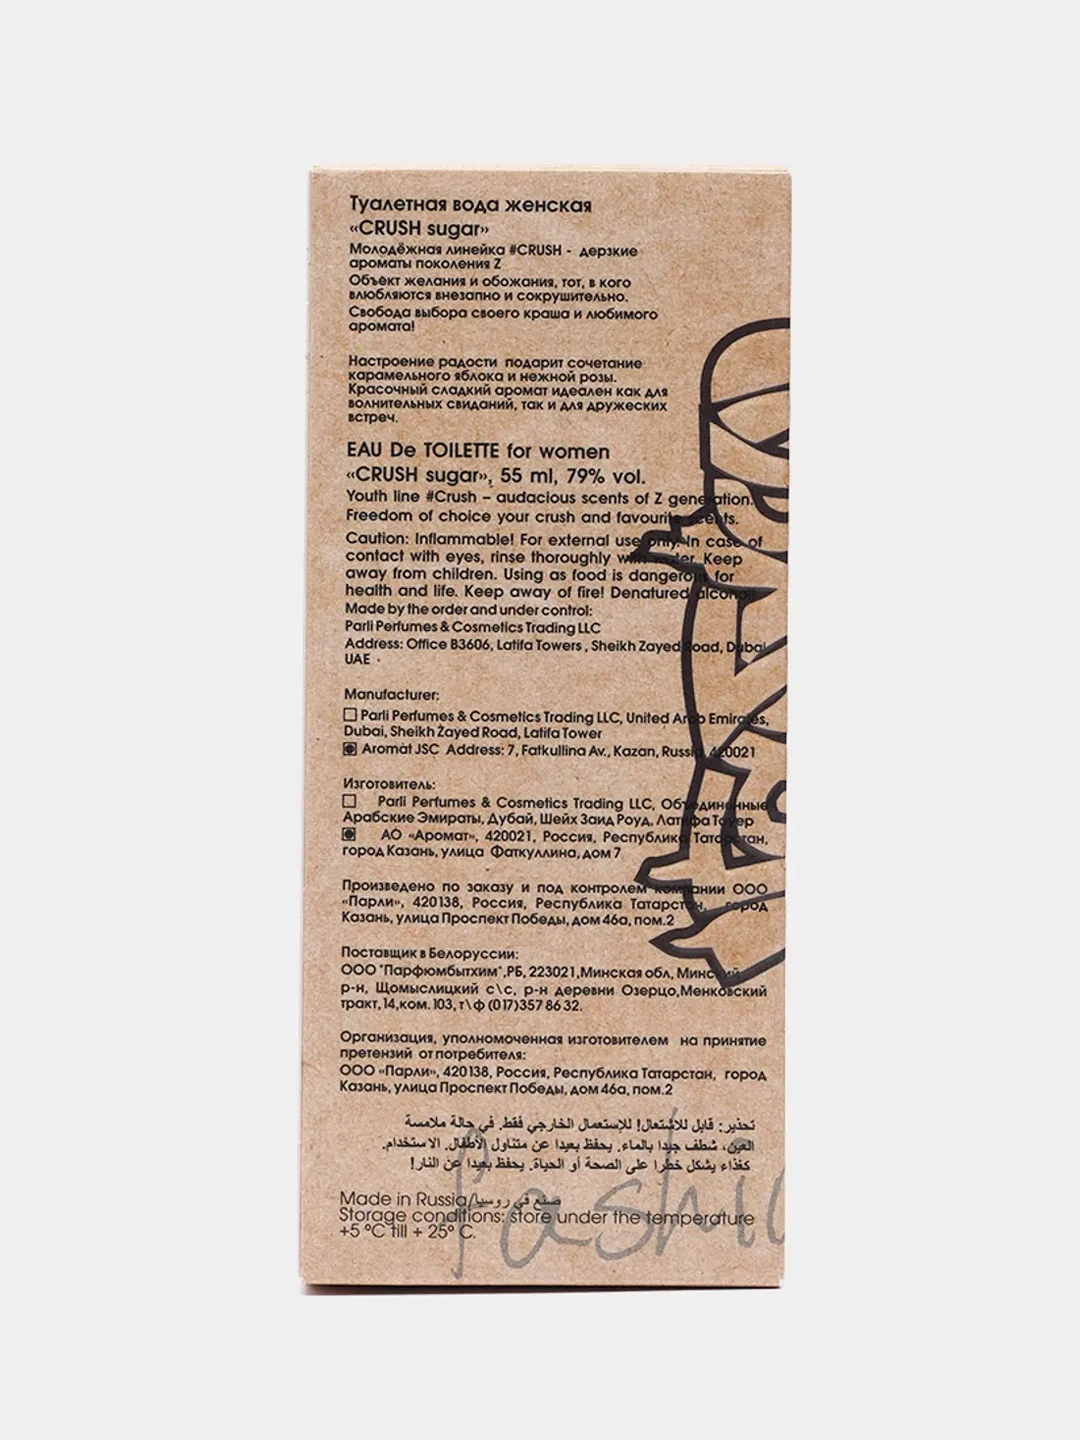 Туалетная вода женская
«CRUSH sugar»
Молодёжная линейка #CRUSH - дерзкие
ароматы поколения Z
Объект желания и обожания, тот, в кого
влюбляются внезапно и сокрушительно.
Свобода выбора своего краша и любимого
аромата!
Настроение радости подарит сочетание
карамельного яблока и нежной розы.
Красочный сладкий аромат идеален как для
волнительных свиданий, так и для дружеских
встреч.
EAU De TOILETTE for women
«CRUSH sugar», 55 ml, 79% vol.
Youth line #Crush – audacious scents of Z generation.
Freedom of choice your crush and favourite scents.
Caution: Inflammable! For external use only. In case of
contact with eyes, rinse thoroughly with water. Keep
away from children. Using as food is dangerous for
health and life. Keep away of fire! Denatured alcohol.
Made by the order and under control:
Parli Perfumes & Cosmetics Trading LLC
Address: Office B3606, Latifa Towers , Sheikh Zayed Road, Dubai
UAE
Manufacturer:
Parli Perfumes & Cosmetics Trading LLC, United Arab Emirates,
Dubai, Sheikh Zayed Road, Latifa Tower
Aromat JSC Address: 7, Fatkullina Av., Kazan, Russia, 420021
Изготовитель:
Parli Perfumes & Cosmetics Trading LLC, Объединенные
Арабские Эмираты, Дубай, Шейх Заид Роуд, Латифа Тауер
АО «Аромат», 420021, Россия, Республика Татарстан,
город Казань, улица Фаткуллина, дом 7
Произведено по заказу и под контролем компании ООО
«Парли», 420138, Россия, Республика Татарстан, город
Казань, улица Проспект Победы, дом 46а, пом.2
Поставщик в Белоруссии:
ООО "Парфюмбытхим",РБ, 223021,Минская обл, Минский
р-н, Щомыслицкий с\с, р-н деревни Озерцо,Менковский
тракт,14,ком. 103, т\ф (017)357 86 32.
Организация, уполномоченная изготовителем на принятие
претензий от потребителя:
ООО «Парли», 420138, Россия, Республика Татарстан, город
Казань, улица Проспект Победы, дом 46а, пом.2
تحذير: قابل للاشتعال! للإستعمال الخارجي فقط. في حالة ملامسة
العين، شطف جيدا بالماء. يحفظ بعيدا عن متناول الأطفال. الاستخدام.
كغذاء يشكل خطرا على الصحة أو الحياة. يحفظ بعيدا عن النار!
Made in Russia/صنع في روسيا
Storage conditions: store under the temperature
+5 ºC till + 25º C.